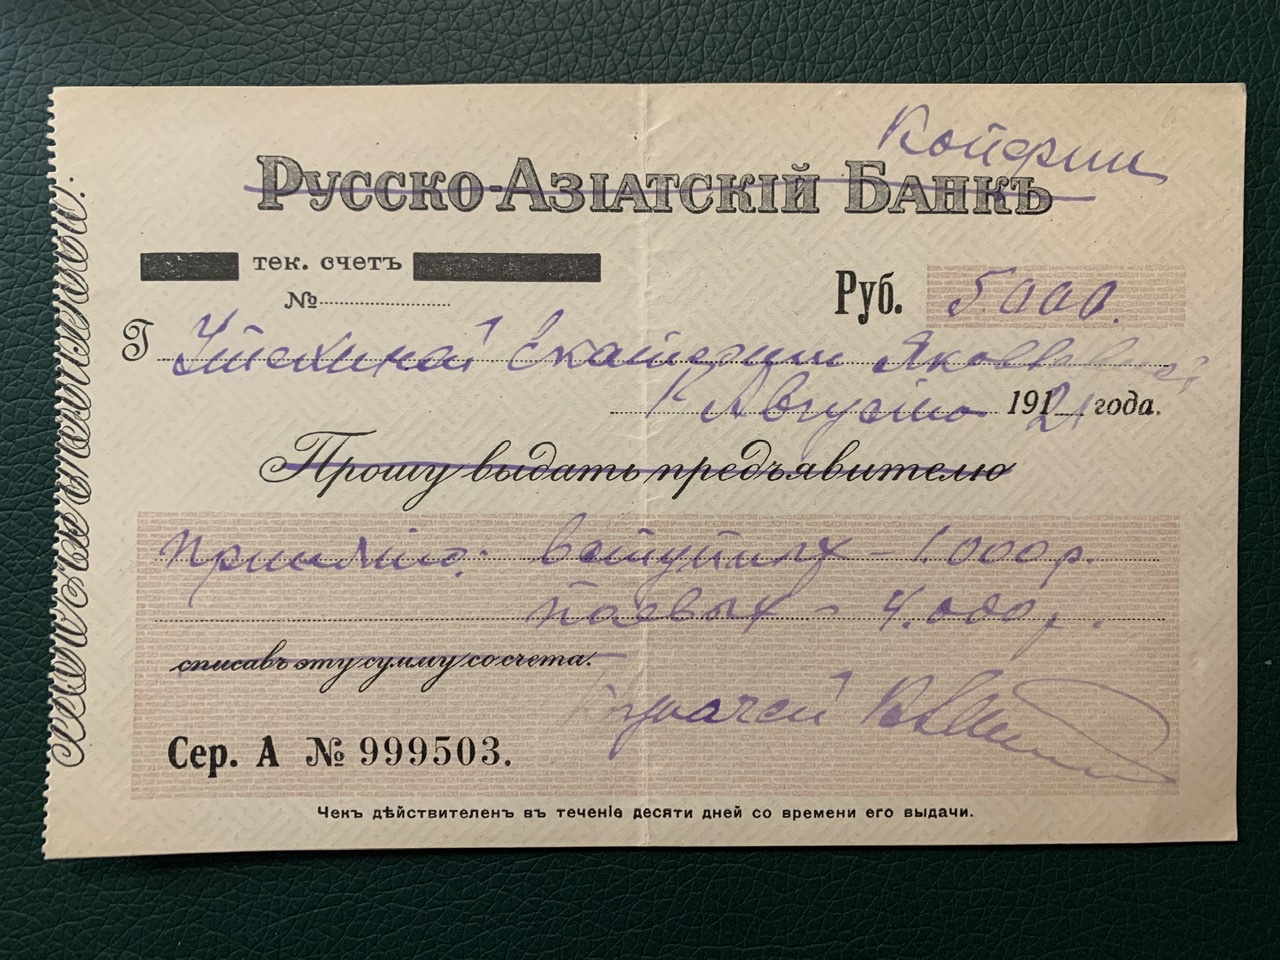 Русско-Азіатскій Банкъ
тек. счетъ
№
Руб. 5.000.
Г Утехиной Екатерины Яковлевной
Августа 1921 года.
Прошу выдать предъявителю
Принято: вступных – 1.000р.
паевых – 4.000р.
списавъ эту сумму со счета.
Казначей
Сер. А № 999503.
Чекъ дѣйствителенъ въ теченіе десяти дней со времени его выдачи.